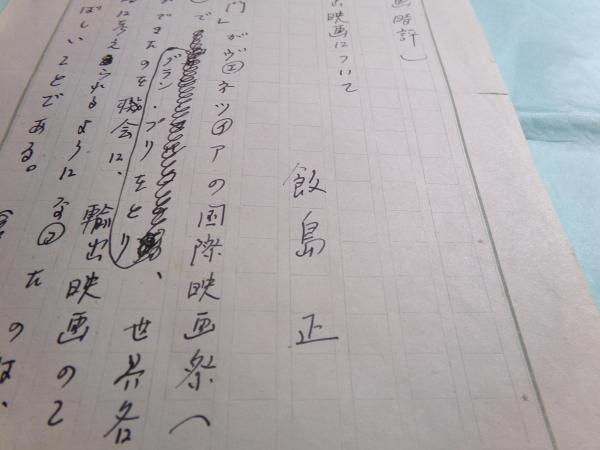 画時評）
出映画について
飯島正
門」がヴェネツィアの国際映画祭へ
で
グラン・プリをとり、世界各
できたのを機会に、
に考えられるように輸出映画のこ
ばしいことである。
なったのは、